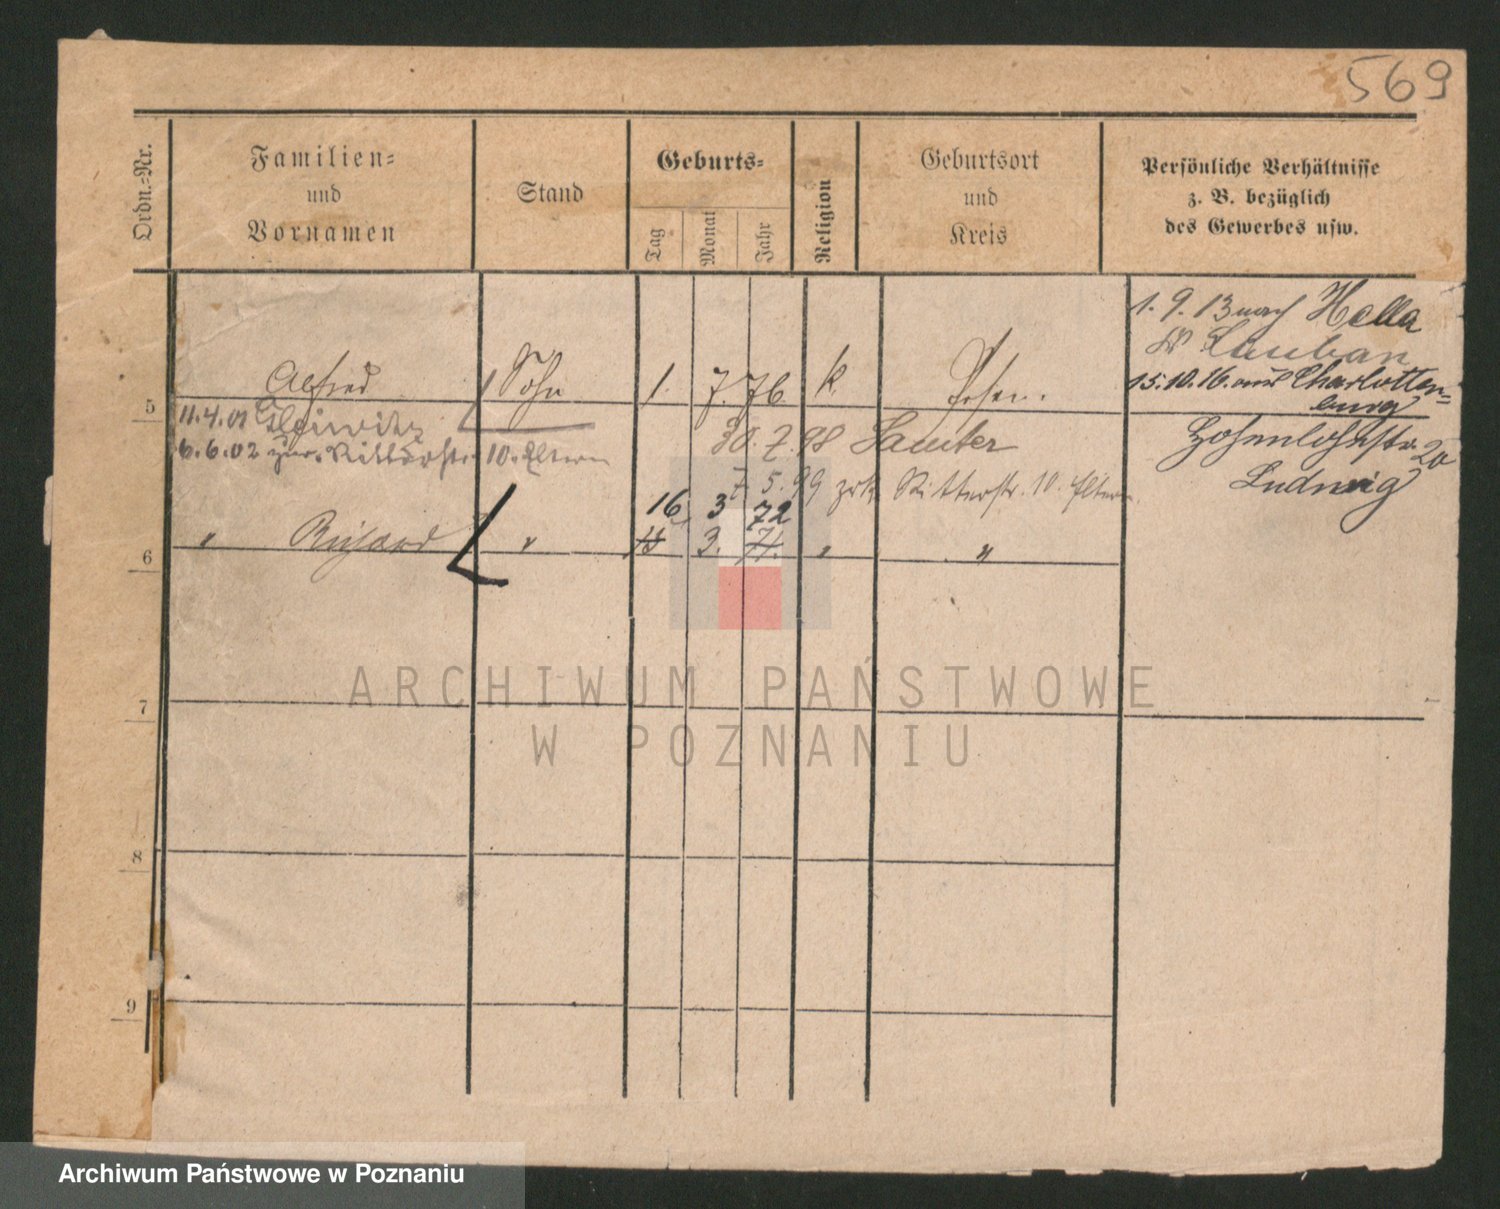 569
Ordn.-Nr.
Familien-
und
Vornamen
Stand
Geburts-
Tag
Monat
Jahr
Religion
Geburtsort
und
Kreis
Persönliche Verhältnisse
z. B. bezüglich
des Gewerbes usw.
1. 9. 13 nach Halle
Lauban
15. 10. 16. aus Charlotten-
burg
Hohenlohestr. 20
Ludwig
5
Alfred Sohn 1. 7. 76. k. Posen.
11.4.01 Gleiwitz
30. 7. 98 Samter
6.6.02 zur. Ritterstr. 10. Eltern
7. 5. 99 zrk Ritterstr. 10. Eltern
16 3 72
6
" Richard " 18 3. 71. " "
7
8
9
ARCHIWUM PAŃSTWOWE
W POZNANIU
Archiwum Państwowe w Poznaniu